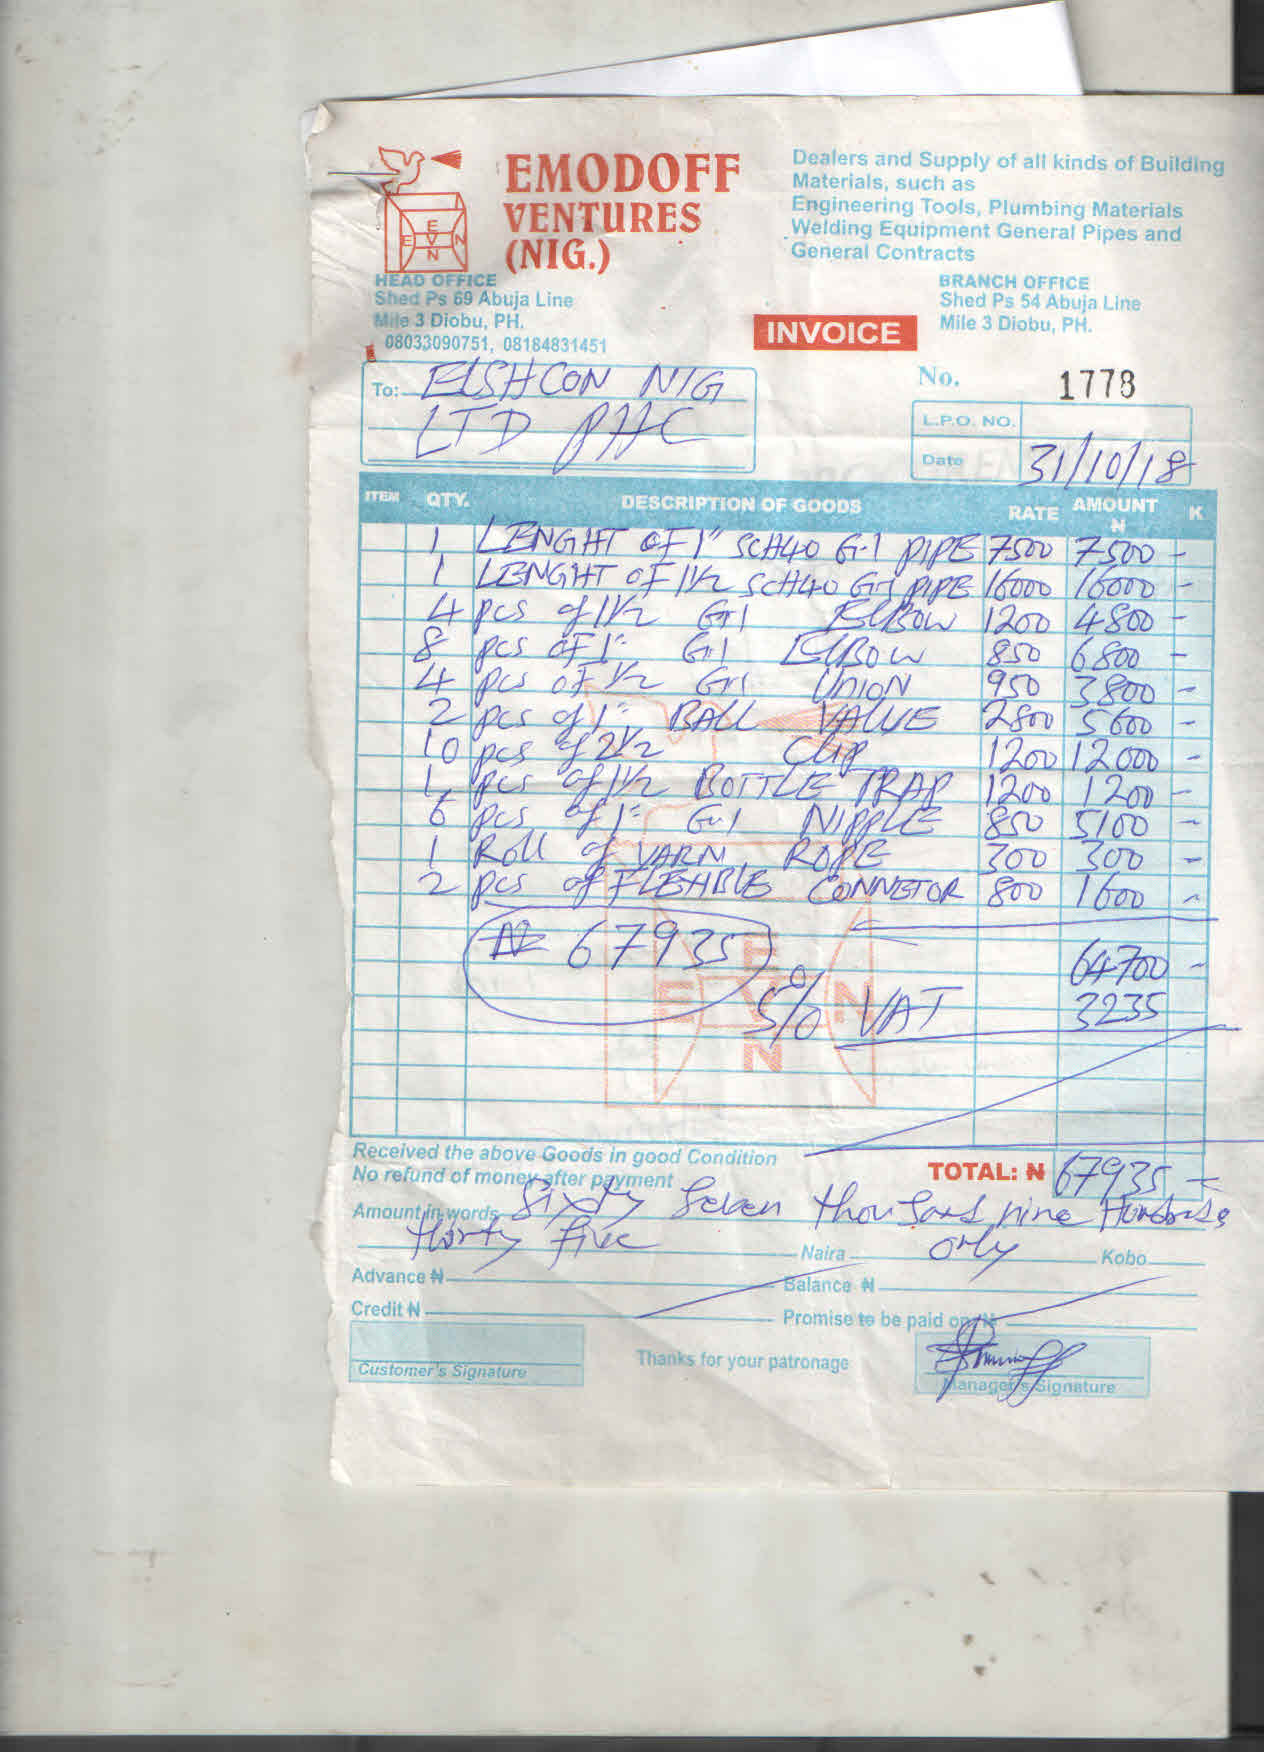 EMODOFF
VENTURES
(NIG.)
Dealers and Supply of all kinds of Building
Materials, such as
Engineering Tools, Plumbing Materials
Welding Equipment General Pipes and
General Contracts
E
E V N
N
HEAD OFFICE
Shed Ps 69 Abuja Line
Mile 3 Diobu, PH.
08033090751, 08184831451
BRANCH OFFICE
Shed Ps 54 Abuja Line
Mile 3 Diobu, PH.
INVOICE
To: ELSHCON NIG
LTD PHC
No. 1778
L.P.O. NO.
Date 31/10/18
ITEM QTY. DESCRIPTION OF GOODS RATE AMOUNT ₦ K
1 LENGHT OF 1" SCH40 G.I PIPE 7500 7500 -
1 LENGHT OF 1½ SCH40 G.I PIPE 16000 16000 -
4 pcs of 1½ G.I ELBOW 1200 4800 -
8 pcs OF 1" G.I ELBOW 850 6800 -
4 pcs OF 1½ G.I UNION 950 3800 -
2 pcs of 1" BALL VALUE 2800 5600 -
10 pcs of 2½ Clip 1200 12000 -
1 pcs of 1½ BOTTLE TRAP 1200 1200 -
6 pcs of 1" G.I NIPPLE 850 5100 -
1 Roll of YARN ROPE 300 300 -
2 pcs of FLEHBLE CONNETOR 800 1600 -
₦ 67935
64700 -
5% VAT 3235
E
E V N
N
Received the above Goods in good Condition
No refund of money after payment
TOTAL: ₦ 67935 -
Amount in words Sixty Seven thousand nine Hundred &
thirty five Naira only Kobo
Advance ₦ Balance ₦
Credit ₦ Promise to be paid on ₦
Customer's Signature
Thanks for your patronage
Manager's Signature